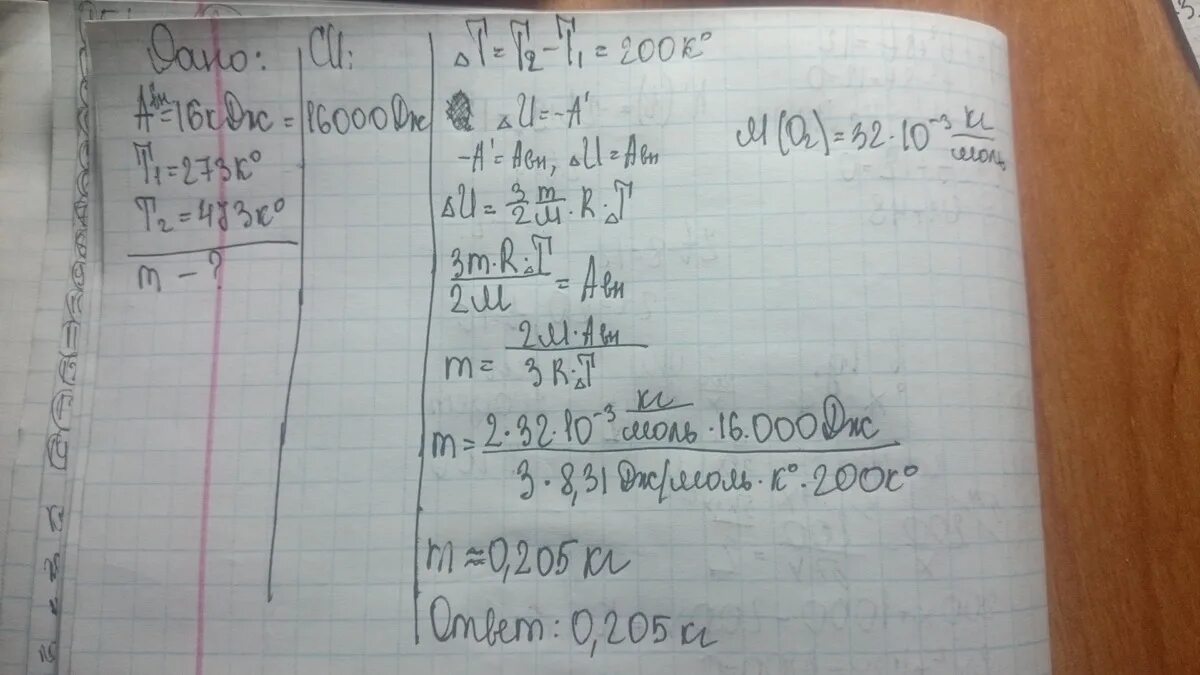 Дано:
A^вн=16кДж =
T₁=273к°
T₂=473к°
m - ?
СИ:
16000Дж
ΔT=T₂-T₁=200к°
ΔU=-A'
-A'=Aвн, ΔU=Aвн
ΔU=3/2 m/M·R·ΔT
3m·R·ΔT/2M = Aвн
m= 2M·Aвн/3R·ΔT
m= 2·32·10⁻³ кг/моль ·16.000Дж/3·8,31 Дж/моль·к°·200к°
m≈0,205 кг
Ответ: 0,205 кг
M(O₂)=32·10⁻³ кг/моль